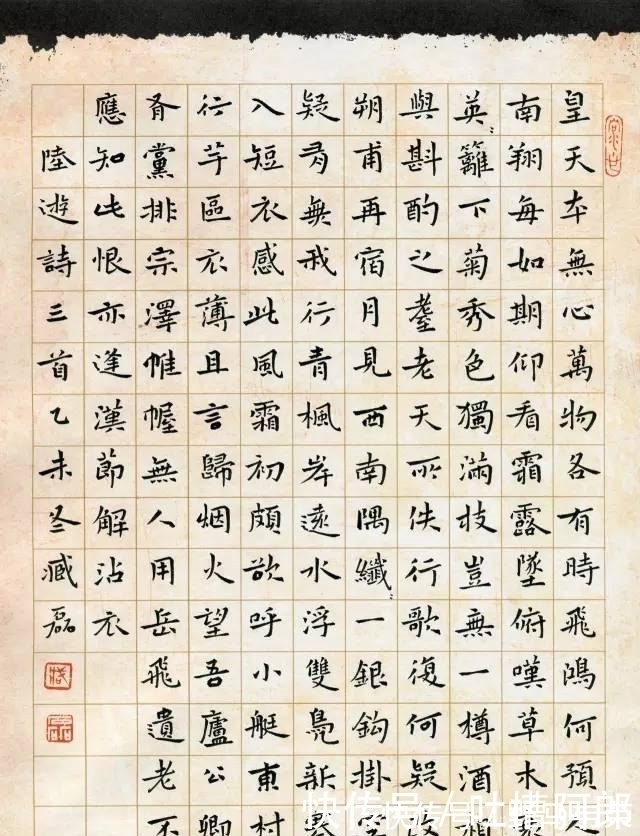 皇天本無心萬物各有時飛鴻何預人
南翔每如期仰看霜露墜俯嘆草木衰
英〻籬下菊秀色獨滿枝豈無一樽酒
與斟酌之耋老天所佚行歌復何疑改
朔甫再宿月見西南隅纖〻一銀鈎掛空
疑有無我行青楓岸遠水浮雙鳧新寒
入短衣感此風霜初頗欲呼小艇東村
行芋區衣薄且言歸烟火望吾廬公卿
胥黨排宗澤帷幄無人用岳飛遺老不
應知此恨亦逢漢節解沾衣
陸遊詩三首乙未冬臧磊
快传号/吐槽阿郎